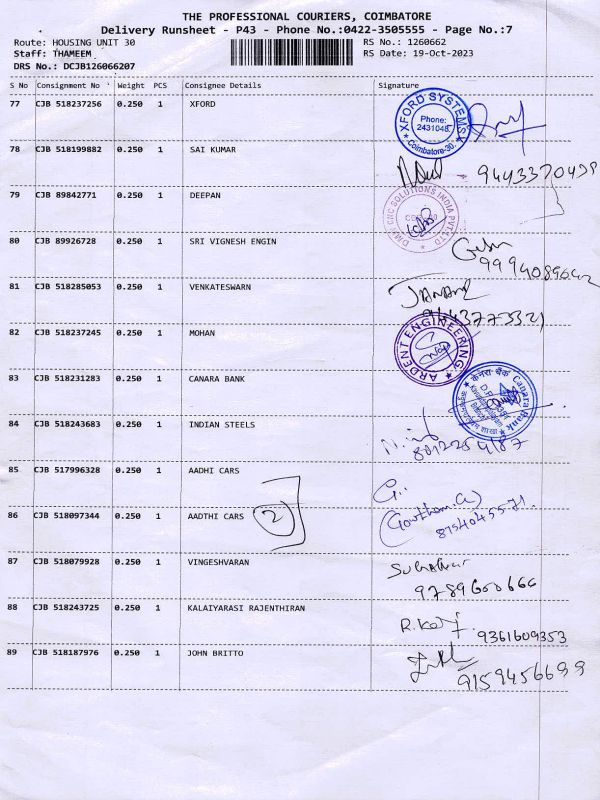 THE PROFESSIONAL COURIERS, COIMBATORE
Delivery Runsheet - P43 - Phone No.:0422-3505555 - Page No.:7
Route: HOUSING UNIT 30 RS No.: 1260662
Staff: THAMEEM RS Date: 19-Oct-2023
DRS No.: DCJB126066207
S No Consignment No Weight PCS Consignee Details Signature
77 CJB 518237256 0.250 1 XFORD
XFORD SYSTEMS
Phone:
2431048
Coimbatore-30.
78 CJB 518199882 0.250 1 SAI KUMAR
79 CJB 89842771 0.250 1 DEEPAN
CNC SOLUTIONS INDIA PVT LTD
80 CJB 89926728 0.250 1 SRI VIGNESH ENGIN
9994089642
81 CJB 518285053 0.250 1 VENKATESWARN
9443773321
82 CJB 518237245 0.250 1 MOHAN
ARDENT ENGINEERING
83 CJB 518231283 0.250 1 CANARA BANK
केनरा बैंक Canara Bank
84 CJB 518243683 0.250 1 INDIAN STEELS
8012254187
85 CJB 517996328 0.250 1 AADHI CARS
86 CJB 518097344 0.250 1 AADTHI CARS 2
Gowtham.G
8754045571
87 CJB 518079928 0.250 1 VINGESHVARAN
9789600666
88 CJB 518243725 0.250 1 KALAIYARASI RAJENTHIRAN
9361609353
89 CJB 518187976 0.250 1 JOHN BRITTO
9159456699